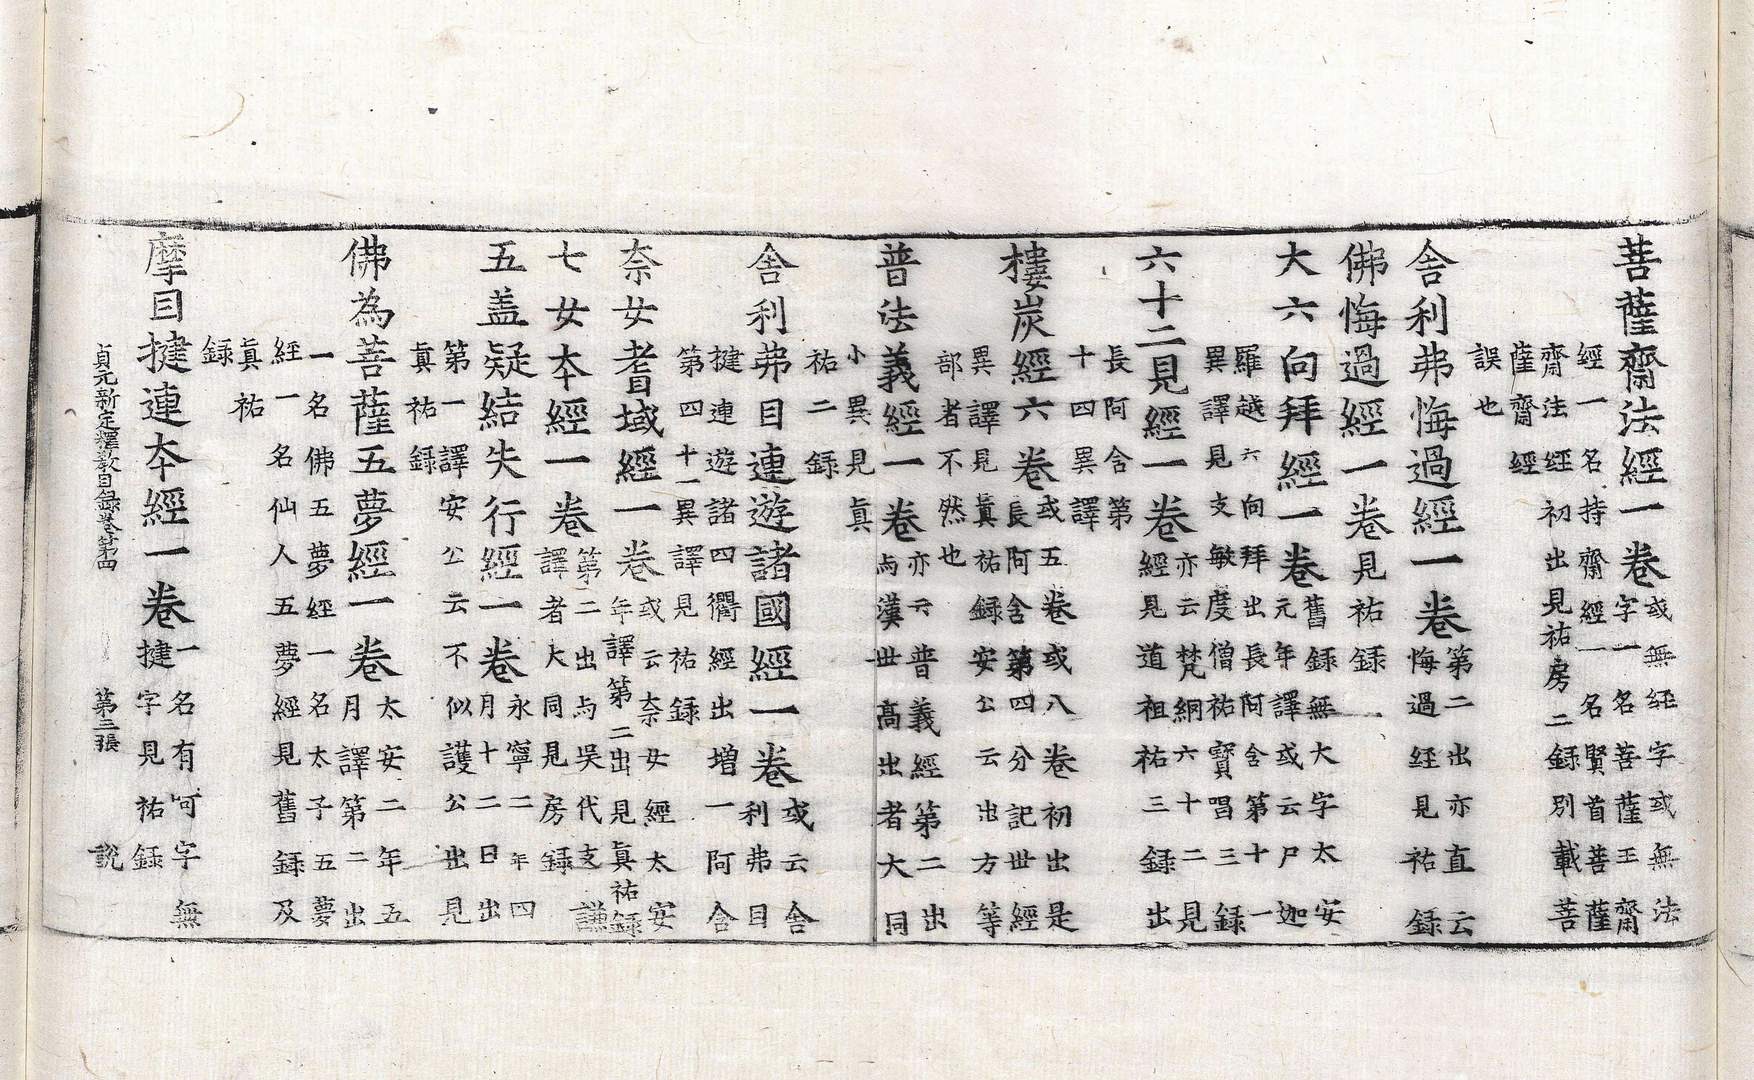 菩薩齋法經一卷或無經字或無法
字一名菩薩王齋
經一名持齋經一名賢首菩薩
齋法經初出見祐房二録別載菩
薩齋經
誤也
舎利弗悔過經一卷第二出亦直云
悔過經見祐録
佛悔過經一卷見祐録
大六向拜經一卷舊録無大字太安
元年譯或云尸迦
羅越六向拜出長阿含第十一
異譯見支敏度僧祐寶唱三録
六十二見經一卷亦云梵網六十二見
經見道祖祐三録出
長阿含第
十四異譯
樓炭經六卷或五卷或八卷初出是
長阿含第四分記世經
異譯見眞祐録安公云出方等
部者不然也
普法義經一卷亦云普義經第二出
与漢世高出者大同
小異見眞
祐二録
舎利弗目連遊諸國經一卷或云舎
利弗目
揵連遊諸四衢經出增一阿含
第四十一異譯見祐録
奈女耆域經一卷或云奈女經太安
年譯第二出見眞祐録
七女本經一卷第二出与吳代支謙
譯者大同見房録
五盖疑結失行經一卷永寧二年四
月十二日出
第一譯安公云不似護公出見
眞祐録
佛為菩薩五夢經一卷太安二年五
月譯第二出
一名佛五夢經一名太子五夢
經一名仙人五夢經見舊録及
眞祐
録
摩目揵連本經一卷一名有呵字無
揵字見祐録
貞元新定釋教目録卷第四 第二張 說